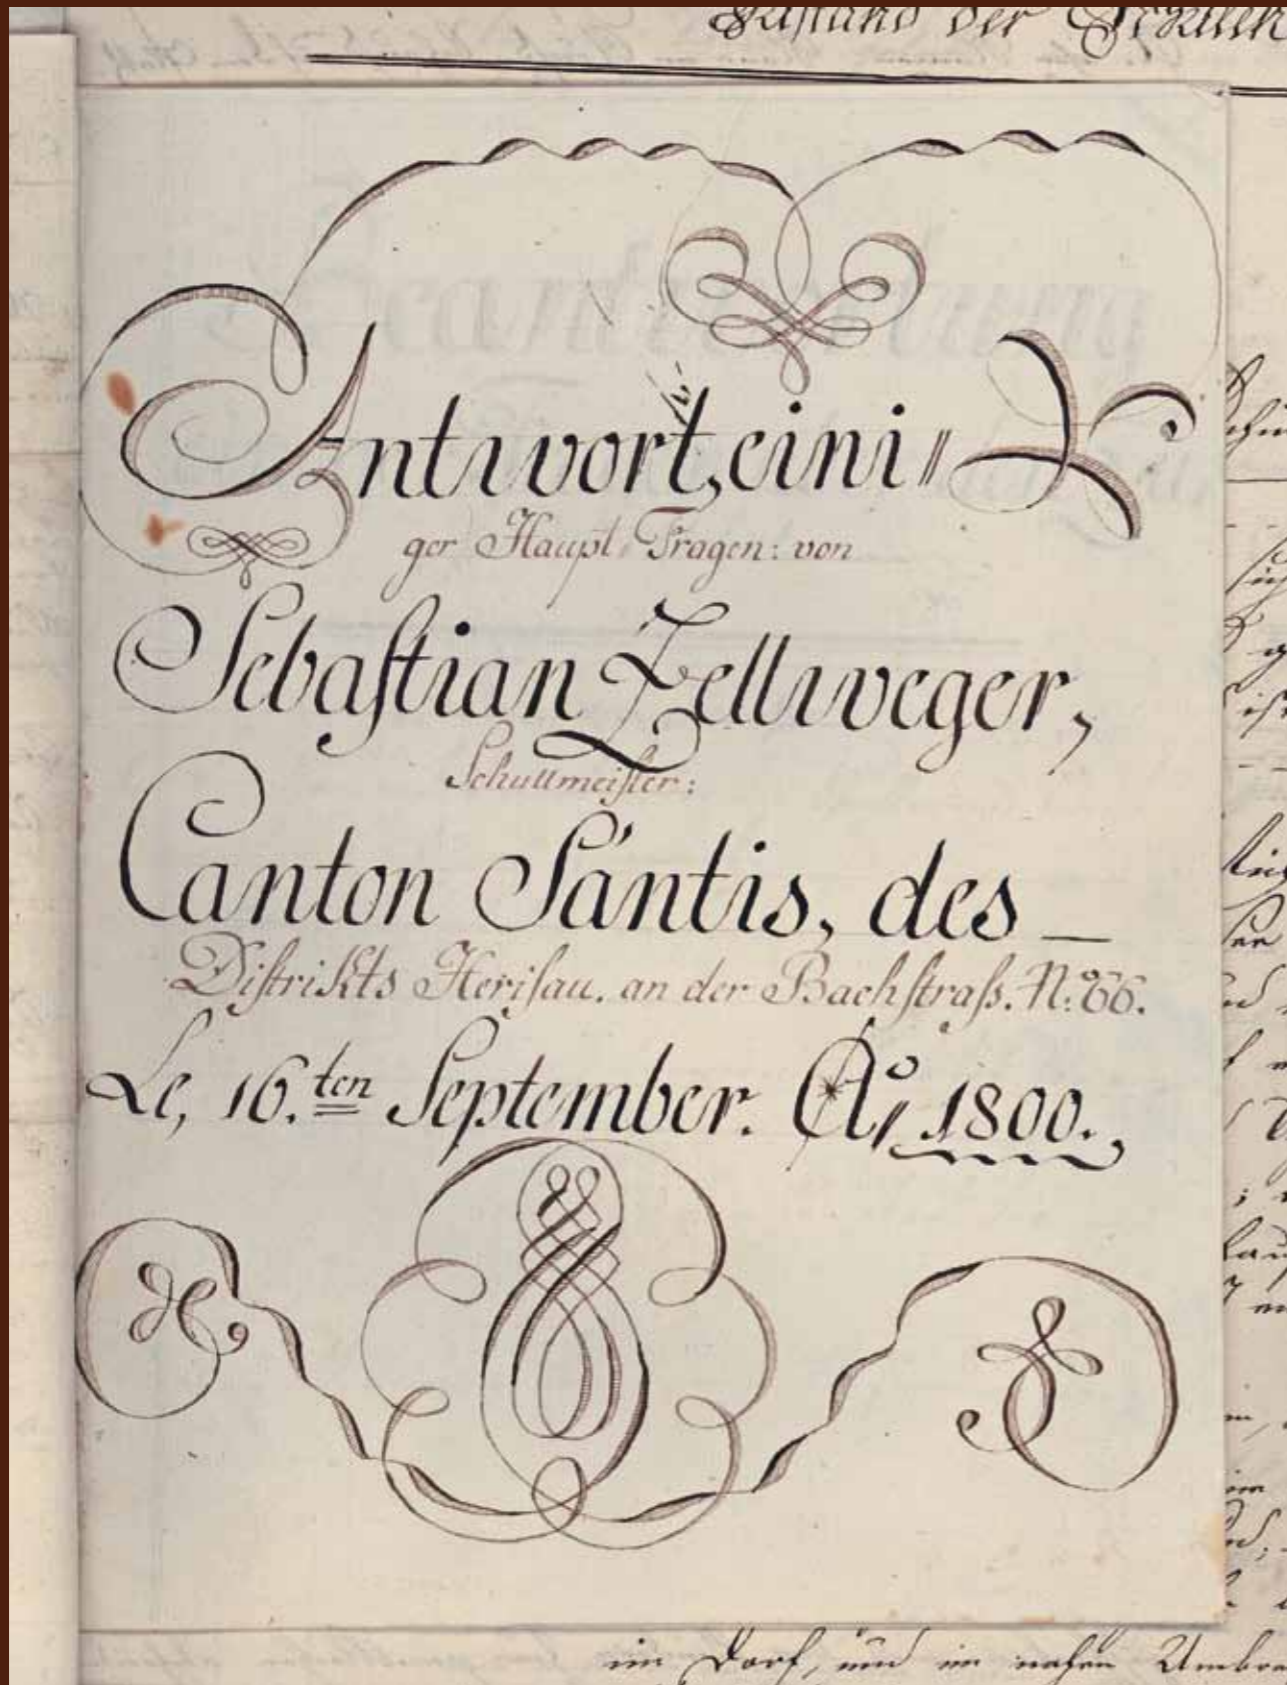 Zustand der Schulen
Antwort, eini〃
ger Haupt〃Fragen: von
Sebaſtian Zellweger,
Schullmeiſter:
Canton Säntis, des —
Diſtrikts Heriſau. an der Bachſtraſs. N.º 66.
Le, 16.ten September. Aº, 1800.,
im Dorf, und im nahen